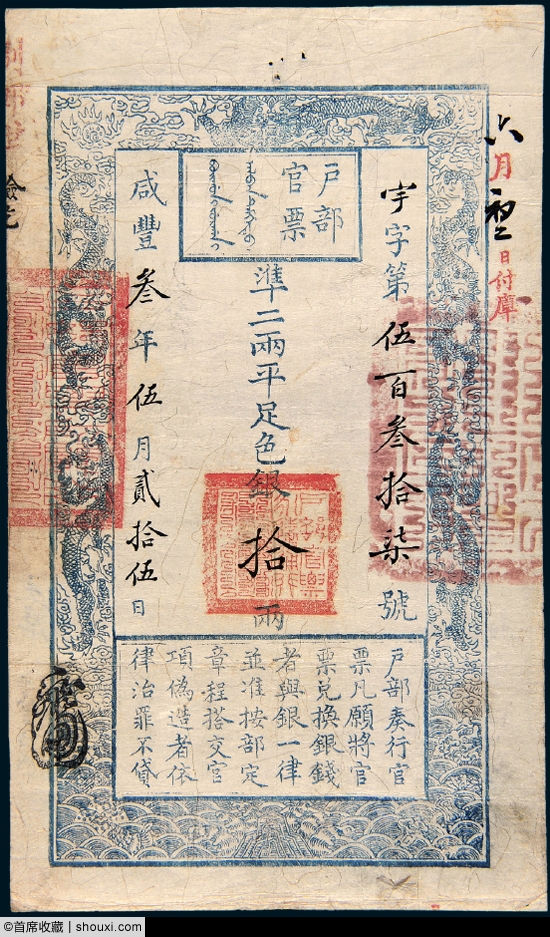 户部
官票
宇字第伍百叁拾柒號
準二兩平足色銀拾兩
咸豐叁年伍月貳拾伍日
户部奏行官
票凡願將官
票兌換銀錢
者與銀一律
並准按部定
章程搭交官
項偽造者依
律治罪不貸
六月初
日付庫
©首席收藏 | shouxi.com